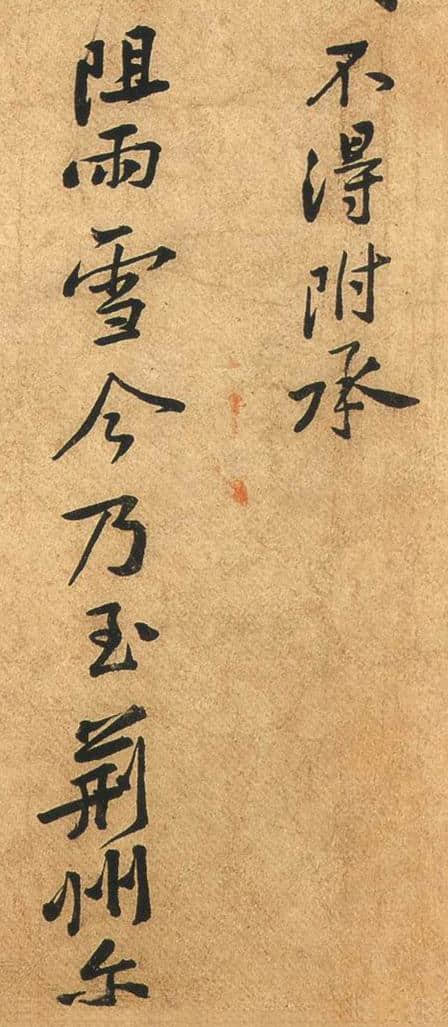 不得附承
阻雨雪今乃至荆州尓